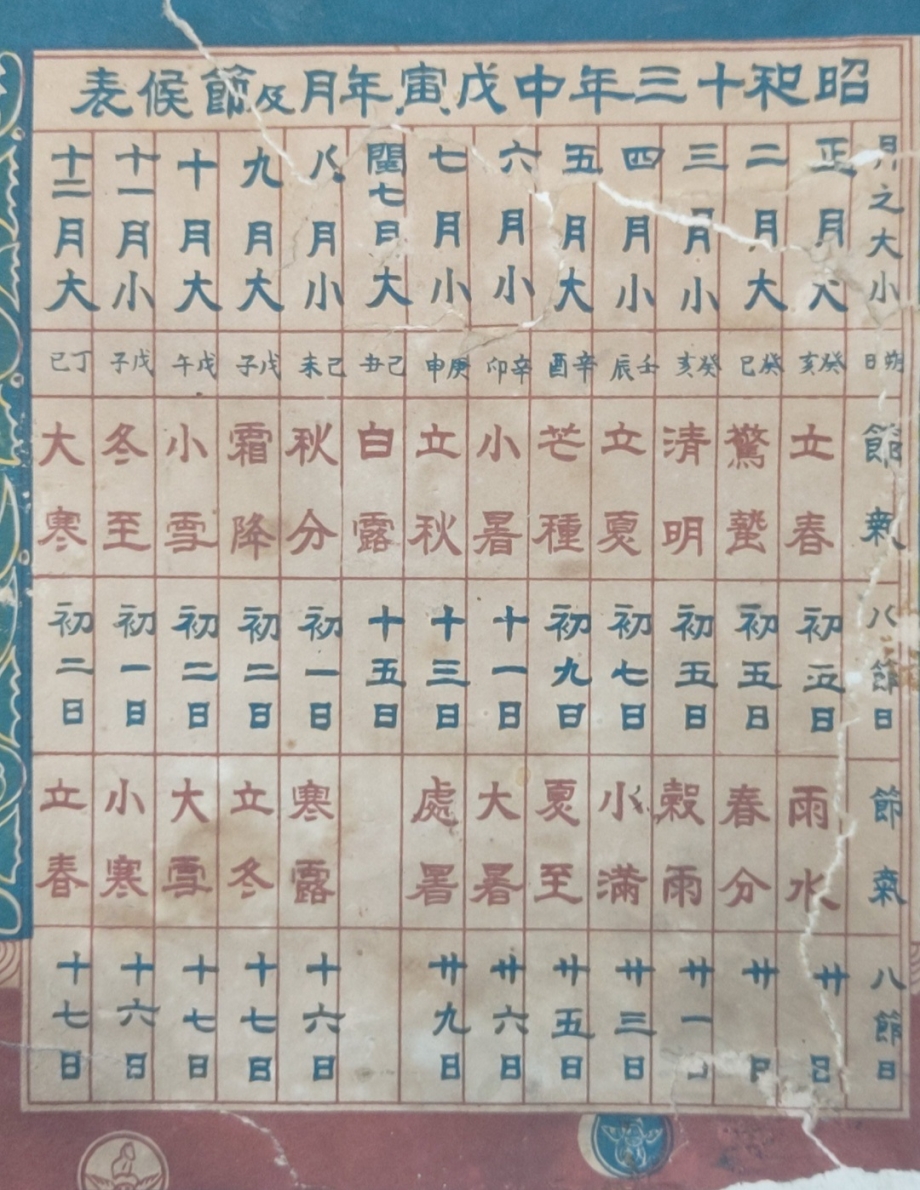 昭和十三年中戊寅年月及節候表
月之大小 朔日 節氣 八節日 節氣 八節日
正月大 癸亥 立春 初五日 雨水 廿日
二月大 癸巳 驚蟄 初五日 春分 廿日
三月小 癸亥 清明 初五日 穀雨 廿一日
四月小 壬辰 立夏 初七日 小滿 廿三日
五月大 辛酉 芒種 初九日 夏至 廿五日
六月小 辛卯 小暑 十一日 大暑 廿六日
七月小 庚申 立秋 十三日 處暑 廿九日
閏七月大 己丑 白露 十五日
八月小 己未 秋分 初一日 寒露 十六日
九月大 戊子 霜降 初二日 立冬 十七日
十月大 戊午 小雪 初二日 大雪 十七日
十一月小 戊子 冬至 初一日 小寒 十六日
十二月大 丁巳 大寒 初二日 立春 十七日